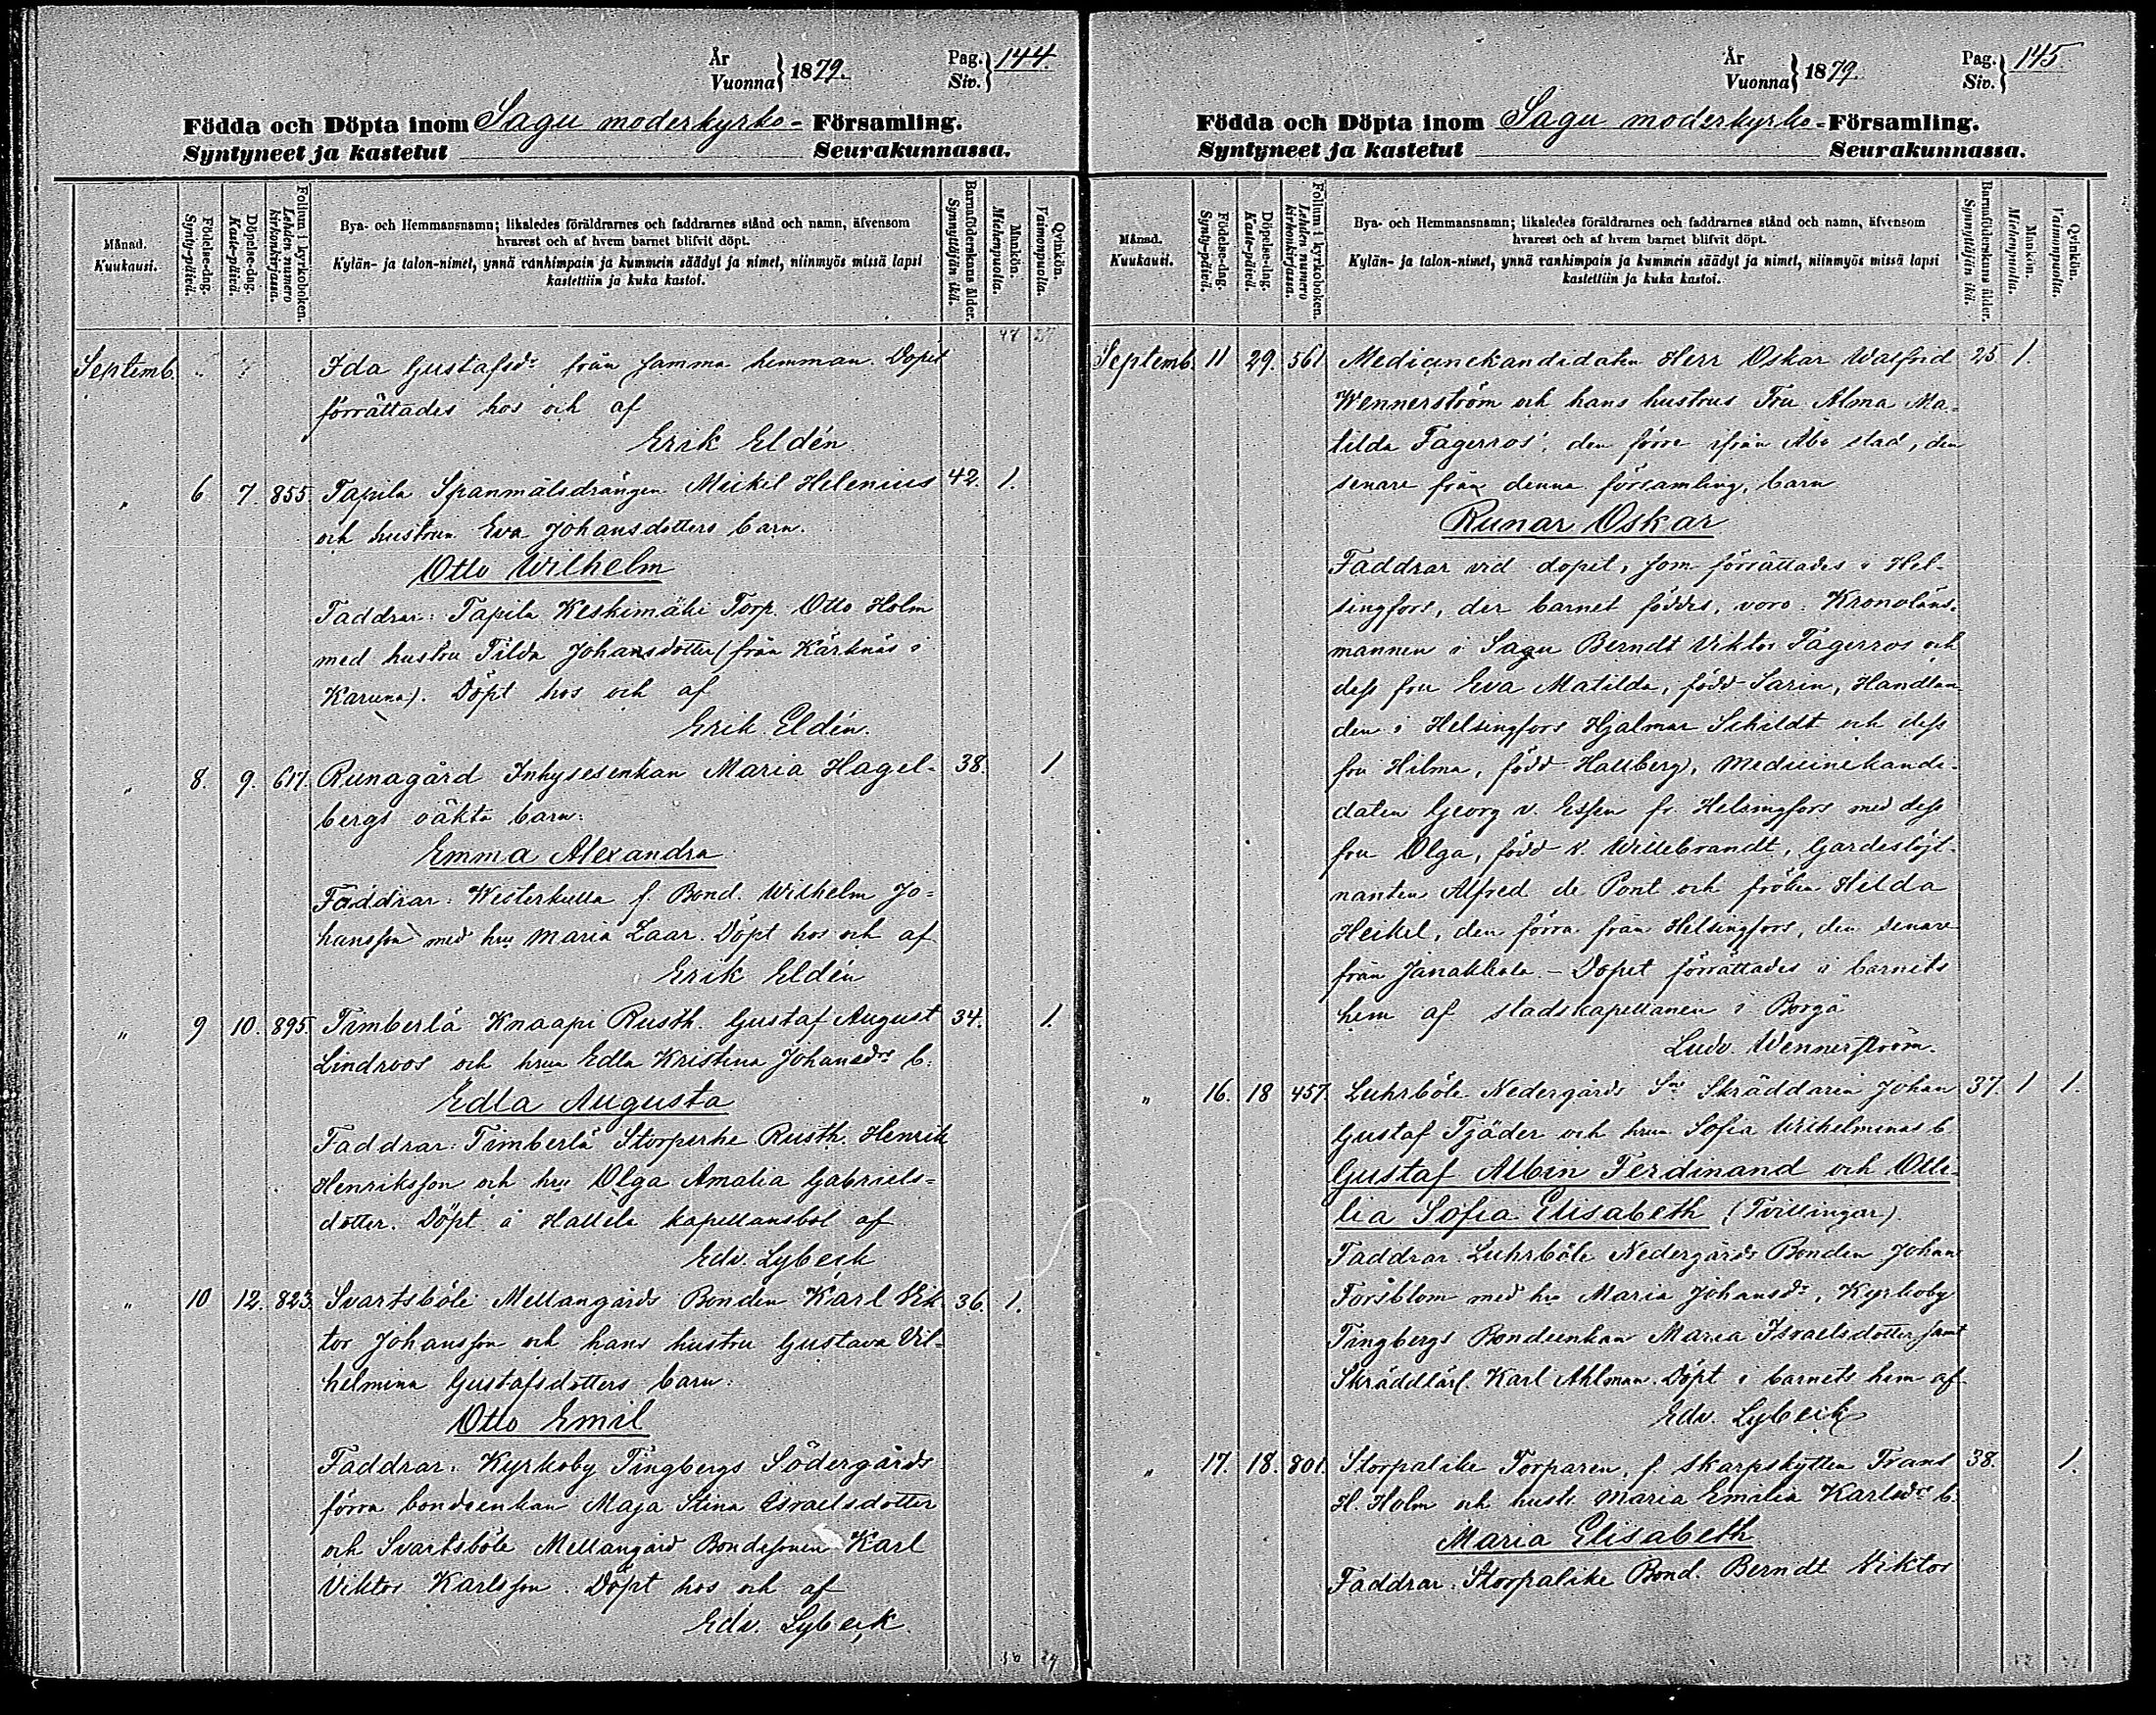 År
Vuonna } 1879. Pag.
Siv. } 144.
Födda och Döpta inom Sagu moderkyrko- Församling.
Syntyneet ja kastetut Seurakunnassa.
Månad.
Kuukausi.
Födelse-dag.
Synty-päivä.
Döpelse-dag.
Kaste-päivä.
Folium i kyrkoboken.
Lehden numero
kirkonkirjassa.
Bya- och Hemmansnamn; likaledes föräldrarnes och faddrarnes stånd och namn, äfvensom
hvarest och af hvem barnet blifvit döpt.
Kylän- ja talon-nimet, ynnä vanhimpain ja kummein säädyt ja nimet, niinmyös missä lapsi
kastettiin ja kuka kastoi.
Barnaföderskans ålder.
Synnyttäjän ikä.
Mankön.
Miehenpuolia.
Qvinkön.
Vaimonpuolia.
47 27
Septemb. Ida Gustafsdr från samma hemman. Dopet
förrättades hos och af
Erik Eldén
" 6. 7. 855. Tapila Spanmålsdrängen Mickel Helenius 42. 1.
och hustrun Eva Johansdotters barn.
Otto Wilhelm
Faddrar: Tapila Keskimäki Torp. Otto Holm
med hustru Tilda Johansdotter (från Kärknäs i
Karuna). Döpt hos och af
Erik Eldén.
" 8. 9. 617. Runagård Inhysesenkan Maria Hagel- 38. 1
bergs oäkta barn:
Emma Alexandra
Faddrar: Westerkulla f. Bond. Wilhelm Jo=
hansson med hru Maria Zaar. Döpt hos och af
Erik Eldén
" 9 10. 895. Timberlä Knaapi Rusth. Gustaf August 34. 1.
Lindroos och hrun Edla Kristina Johansdrs b.
Edla Augusta
Faddrar: Timberlä Storperhe Rusth. Henrik
Henriksson och hru Olga Amalia Gabriels=
dotter. Döpt å Hallela kapellansbol af
Edv. Lybeck
" 10 12. 823. Svartsböle Mellangårds Bonden Karl Vik- 36. 1.
tor Johansson och hans hustru Gustava Vil-
helmina Gustafsdotters barn:
Otto Emil
Faddrar: Kyrkoby Tingbergs Södergårds
förra bondeenkan Maja Stina Israelsdotter
och Svartsböle Mellangård Bondesonen Karl
Viktor Karlsson. Döpt hos och af
Edv. Lybeck.
50 29
År
Vuonna } 1879. Pag.
Siv. } 145.
Födda och Döpta inom Sagu moderkyrko- Församling.
Syntyneet ja kastetut Seurakunnassa.
Månad.
Kuukausi.
Födelse-dag.
Synty-päivä.
Döpelse-dag.
Kaste-päivä.
Folium i kyrkoboken.
Lehden numero
kirkonkirjassa.
Bya- och Hemmansnamn; likaledes föräldrarnes och faddrarnes stånd och namn, äfvensom
hvarest och af hvem barnet blifvit döpt.
Kylän- ja talon-nimet, ynnä vanhimpain ja kummein säädyt ja nimet, niinmyös missä lapsi
kastettiin ja kuka kastoi.
Barnaföderskans ålder.
Synnyttäjän ikä.
Mankön.
Miehenpuolia.
Qvinkön.
Vaimonpuolia.
Septemb. 11 29. 561 Medicinekandidaten Herr Oskar Walfrid 25 1.
Wennerström och hans hustrus Fru Alma Ma-
tilda Fagerros', den förre ifrån Åbo stad, den
senare från denna församling, barn
Runar Oskar
Faddrar vid dopet, som förrättades i Hel-
singfors, der barnet föddes, voro: Kronoläns-
mannen i Sagu Berndt Viktor Fagerros och
dess fru Eva Matilda, född Sarin, Handlan-
den i Helsingfors Hjalmar Schildt och dess
fru Hilma, född Hallberg, Medicinekandi-
daten Georg v. Essen fr. Helsingfors med dess
fru Olga, född v. Willebrandt, Gardeslöjt-
nanten Alfred de Pont och fröken Hilda
Heikel, den förra från Helsingfors, den senare
från Janakkala. - Dopet förrättades i barnets
hem af stadskapellanen i Borgå
Ludv. Wennerström.
" 16. 18 457. Luhrböle Nedergårds Sne Skräddaren Johan 37. 1 1.
Gustaf Tjäder och hrun Sofia Wilhelminas b.
Gustaf Albin Ferdinand och Otti-
lia Sofia Elisabeth (Tvillingar).
Faddrar: Luhrböle Nedergårds Bonden Johan
Forsblom med hru Maria Johansdr, Kyrkoby
Tingbergs Bondeenkan Maria Israelsdotter samt
Skräddlärl. Karl Ahlman. Döpt i barnets hem af
Edv. Lybeck
" 17. 18. 801. Storpalike Torparen, f. skarpskytten Frans 38. 1.
H. Holm och hustr. Maria Emilia Karlsdrs b.
Maria Elisabeth
Faddrar: Storpalike Bond. Berndt Viktor